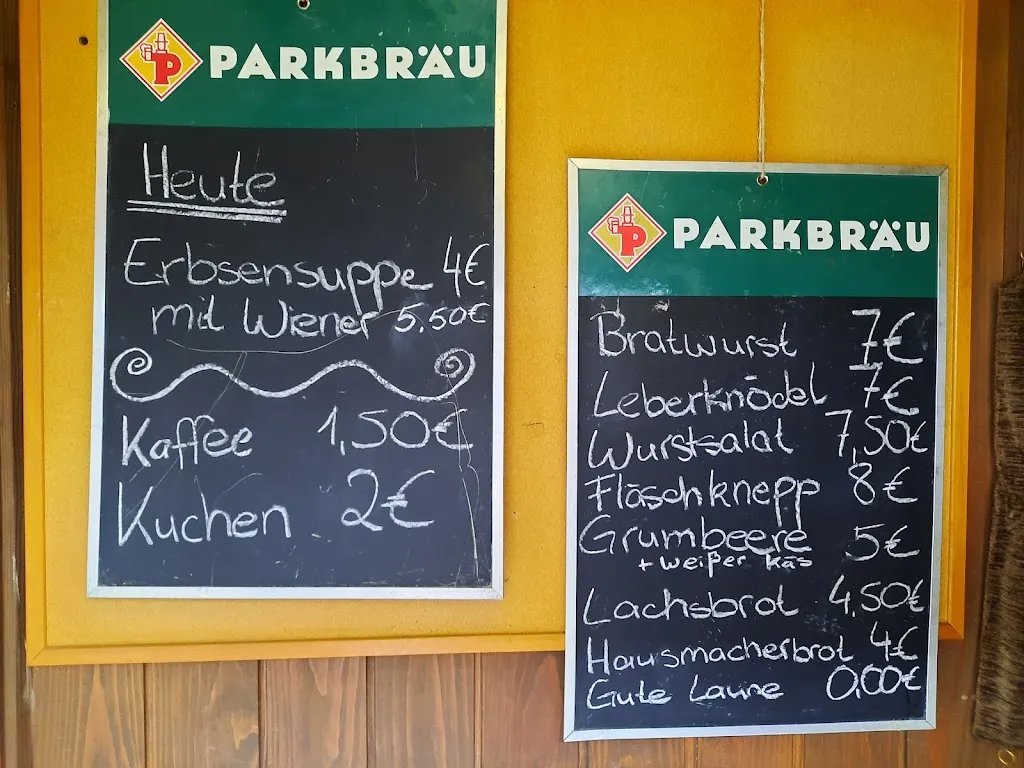 PARKBRÄU
Heute
Erbsensuppe 4€
mit Wiener 5.50€
Kaffee 1,50€
Kuchen 2€
P PARKBRÄU
Bratwurst 7€
Leberknödel 7€
Wurstsalat 7,50€
Fläschknepp 8€
Grumbeere 5€
+ weißer Käs
Lachsbrot 4,50€
Hausmacherbrot 4€
Gute Laune 0,00€